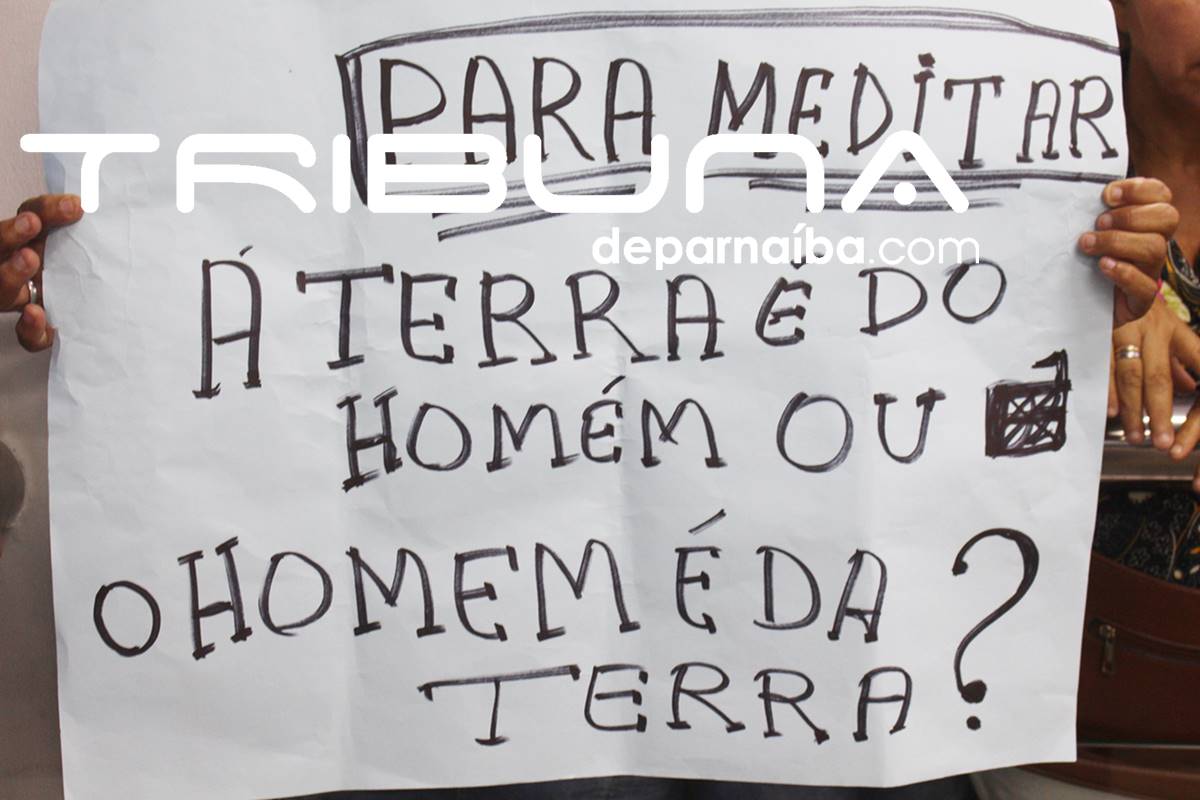 PARA MEDITAR
TRIBUNA
deparnaíba.com
Á TERRA É DO
HOMÉM OU
O HOMEM É DA
TERRA?